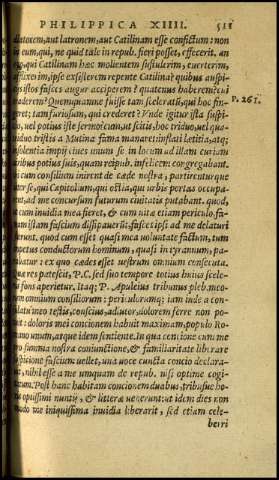 PHILIPPICA XIIII. 511
diatorem, aut latronem, aut Catilinam esse confictum: non
in eum, qui, ne quid tale in repub. fieri posset, effecerit, an
ego, qui Catilinam hæc molientem sustulerim, euerterim,
afflixerim, ipse exsisterem repente Catilina? quibus auspi-
ijs istos fasces augur acciperem? quatenus haberem? cui
traderem? Quemquamne fuisse tam sceleratũ, qui hoc fin-
geret; tam furiosum, qui crederet? Vnde igitur ista suspi-
cio, uel potius iste sermo? cum, ut scitis, hoc triduo, uel qua-
triduo tristis a Mutina fama manaret: inflati lætitia, atq;
insolentia impij ciues unum se in locum ad illam curiam
uiribus potius suis, quam reipub. infelicem congregabant.
cum consilium inirent de cæde nostra, partirenturque
inter se, qui Capitolium, qui ostia, qui urbis portas occupa-
ret, ad me concursum futurum ciuitatis putabant. quod,
ut cum inuidia mea fieret, & cum uitæ etiam periculo, fa-
mam istam fascium dissipauerũt: fasces ipsi ad me delaturi
fuerunt. quod cum esset quasi mea uoluntate factum, tum
in me impetus conductorum hominum, quasi in tyrannum, pa-
rabatur: ex quo cædes esset uestrum omnium consecuta.
quæ res patefecit, P. C. sed suo tempore totius huius scele-
ris fons aperietur. Itaq; P. Apuleius tribunus pleb. meo-
rum omnium consiliorum: periculorumq; iam inde a con-
sulatu meo testis, conscius, adiutor, dolorem ferre non po-
tuit doloris mei: concionem habuit maximam, populo Ro-
mano unum, atque idem sentiente. In qua concione cum me
pro summa nostra coniunctione, & familiaritate liberare
suspicione fascium uellet, una uoce cuncta concio declara-
uit, nihil esse a me umquam de repub. nisi optime cogi-
tatum. Post hanc habitam concionem duabus, tribusue ho-
ris optatissimi nuntij, & litteræ uenerunt: ut idem dies non
modo me iniquissima inuidia liberarit, sed etiam cele-
berri
P. 261.